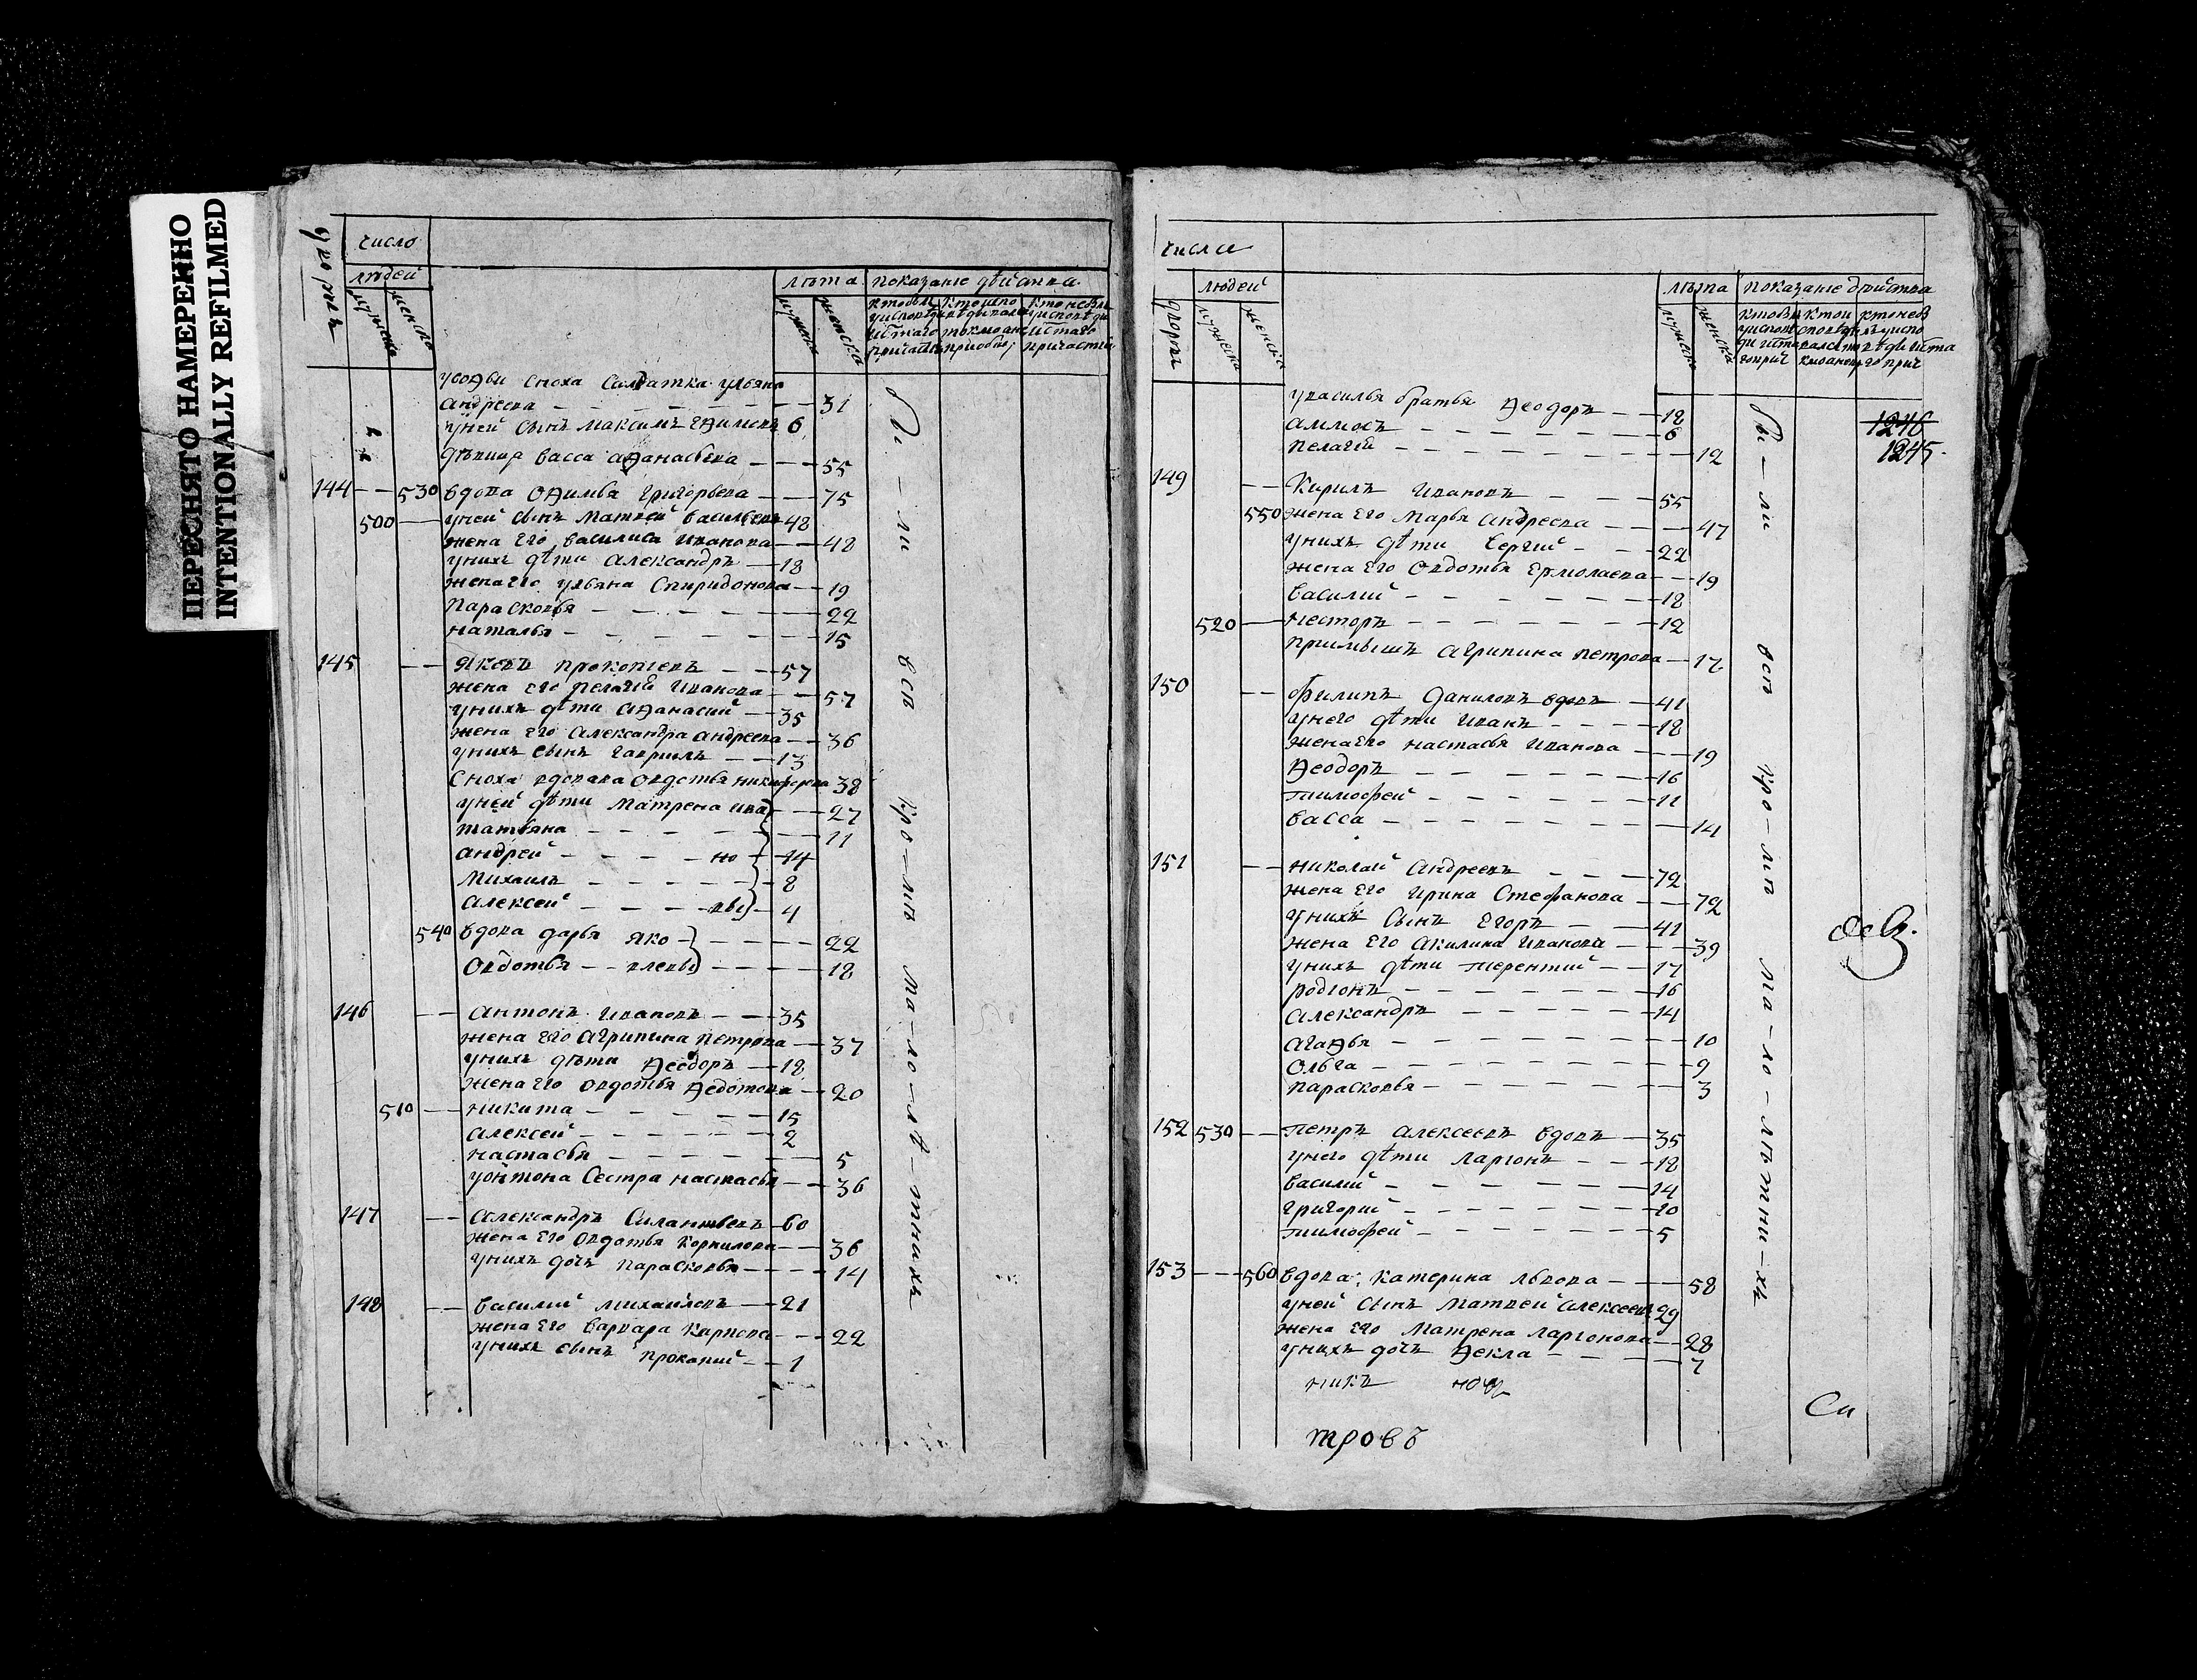 ПЕРЕСНЯТО НАМЕРЕННО
INTENTIONALLY REFILMED
число
людей
лѣта показанїе дѣйства
уСофьи сноха Салдатка ульяна
андреева — 31
уней сынъ максимъ 6
дѣвица васса афанасьева — 55
144 — 530 вдова Офимья григорьева — 75
500 — уней сынъ матвей васильевъ 48
жена его василиса иванова — 48
унихъ дѣти александръ — 18
жена его ульяна Спиридонова — 19
парасковья — 22
наталья — 15
145 — яковъ прокопїевъ — 57
жена его пелагїй иванова — 57
унихъ дѣти афанасий — 35
жена его александра андреева — 36
унихъ сынъ гаврилъ — 13
сноха вдовава овдотья никифорова 38
уней дѣти матрена ива — 27
татьяна — 11
андрей — но — 14
михаилъ — 8
алексей — вы — 4
540 вдова дарья яко — 22
овдотья — влевы — 18
146 — антонъ ивановъ — 35
жена его агрипина петрова — 37
унихъ дѣти феодоръ — 18
жена его овдотья федотова — 20
510 — никита — 15
алексей — 2
настасья — 5
уонтона сестра настасья — 36
147 — александръ Силантьевъ — 60
жена его овдотья корнилова — 36
унихъ дочь парасковья — 14
148 — василий михайловъ — 21
жена его варвара карпова — 22
унихъ сынъ прокопий — 1
бы — ли всѣ кро — мѣ ма — ло — лѣ — тнихъ
числа
людей
лѣта показанїе дѣйства
увасилья братья феодоръ — 18
аммосъ — 6
пелагїй — 12
1246
1245
149 — кирилъ ивановъ — 55
550 жена его марья андреева — 47
унихъ дѣти сергий — 22
жена его овдотья ермолаева — 19
василий — 18
520 — несторъ — 12
примышъ агрипина петрова — 17
150 — филипъ даниловъ вдовъ — 41
унего дѣти иванъ — 18
жена его настасья иванова — 19
феодоръ — 16
тимофей — 11
васса — 14
151 — николай андреевъ — 72
жена его ирина стефанова — 72
унихъ сынъ егоръ — 41
жена его акилина иванова — 39
унихъ дѣти терентий — 17
родїонъ — 16
александръ — 14
агафья — 10
ольга — 9
парасковья — 3
152 530 — петръ алексеевъ вдовъ — 35
унего дѣти ларїонъ — 18
василий — 14
григорий — 10
тимофей — 5
153 — 560 вдова катерина львова — 58
уней сынъ матвей алексеевъ 29
жена его матрена ларїонова — 28
унихъ дочь фекла — 7
бы — ли всѣ кро — мѣ ма — ло — лѣтни — хъ
тровъ
Си